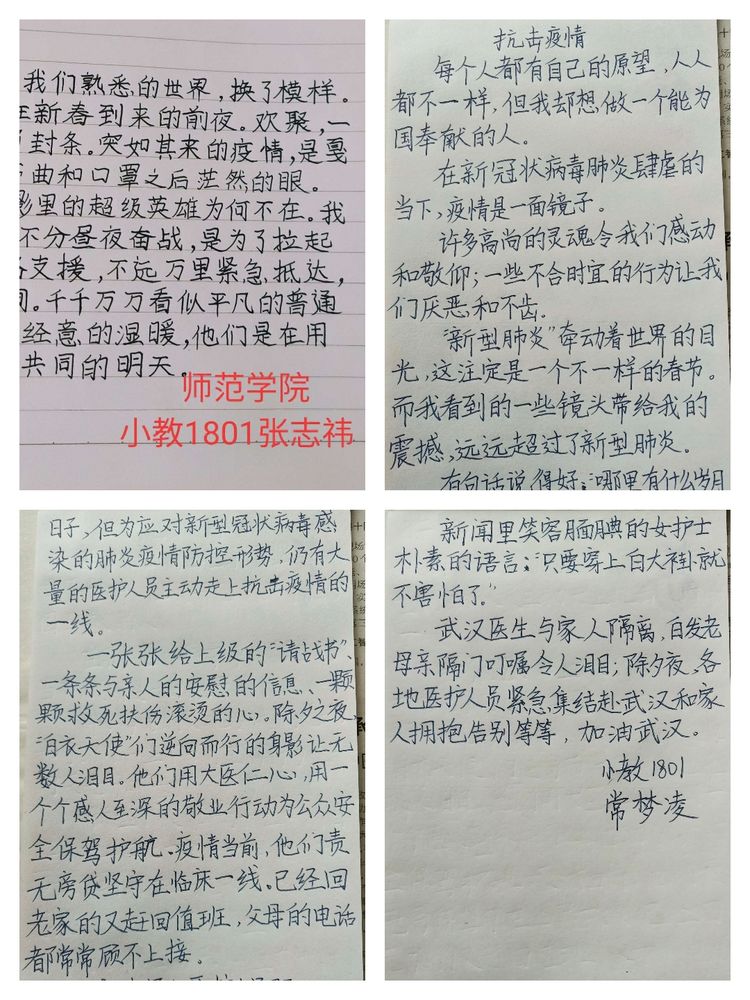 我们熟悉的世界，换了模样。
在新春到来的前夜。欢聚，一
封条。突如其来的疫情，是戛
曲和口罩之后茫然的眼。
影里的超级英雄为何不在。我
不分昼夜奋战，是为了拉起
支援，不远万里紧急抵达，
千千万万看似平凡的普通
经意的温暖，他们是在用
共同的明天。
师范学院
小教1801张志祎
抗击疫情
每个人都有自己的原望，人人
都不一样，但我却想做一个能为
国奉献的人。
在新冠状病毒肺炎肆虐的
当下，疫情是一面镜子。
许多高尚的灵魂令我们感动
和敬仰；一些不合时宜的行为让我
们厌恶和不齿。
“新型肺炎”牵动着世界的目
光，这注定是一个不一样的春节。
而我看到的一些镜头带给我的
震撼，远远超过了新型肺炎。
有句话说得好：“哪里有什么岁月
日子，但为应对新型冠状病毒感
染的肺炎疫情防控形势，仍有大
量的医护人员主动走上抗击疫情的
一线。
一张张给上级的“请战书”、
一条条与亲人的安慰的信息、一颗
颗救死扶伤滚烫的心。除夕之夜，
“白衣天使”们逆向而行的身影让无
数人泪目。他们用大医仁心，用一
个个感人至深的敬业行动为公众安
全保驾护航。疫情当前，他们责
无旁贷坚守在临床一线。已经回
老家的又赶回值班，父母的电话
都常常顾不上接。
新闻里笑容腼腆的女护士
朴素的语言：“只要穿上白大褂就
不害怕了。”
武汉医生与家人隔离，白发老
母亲隔门叮嘱令人泪目；除夕夜，各
地医护人员紧急集结赴武汉和家
人拥抱告别等等，加油武汉。
小教1801
常梦凌